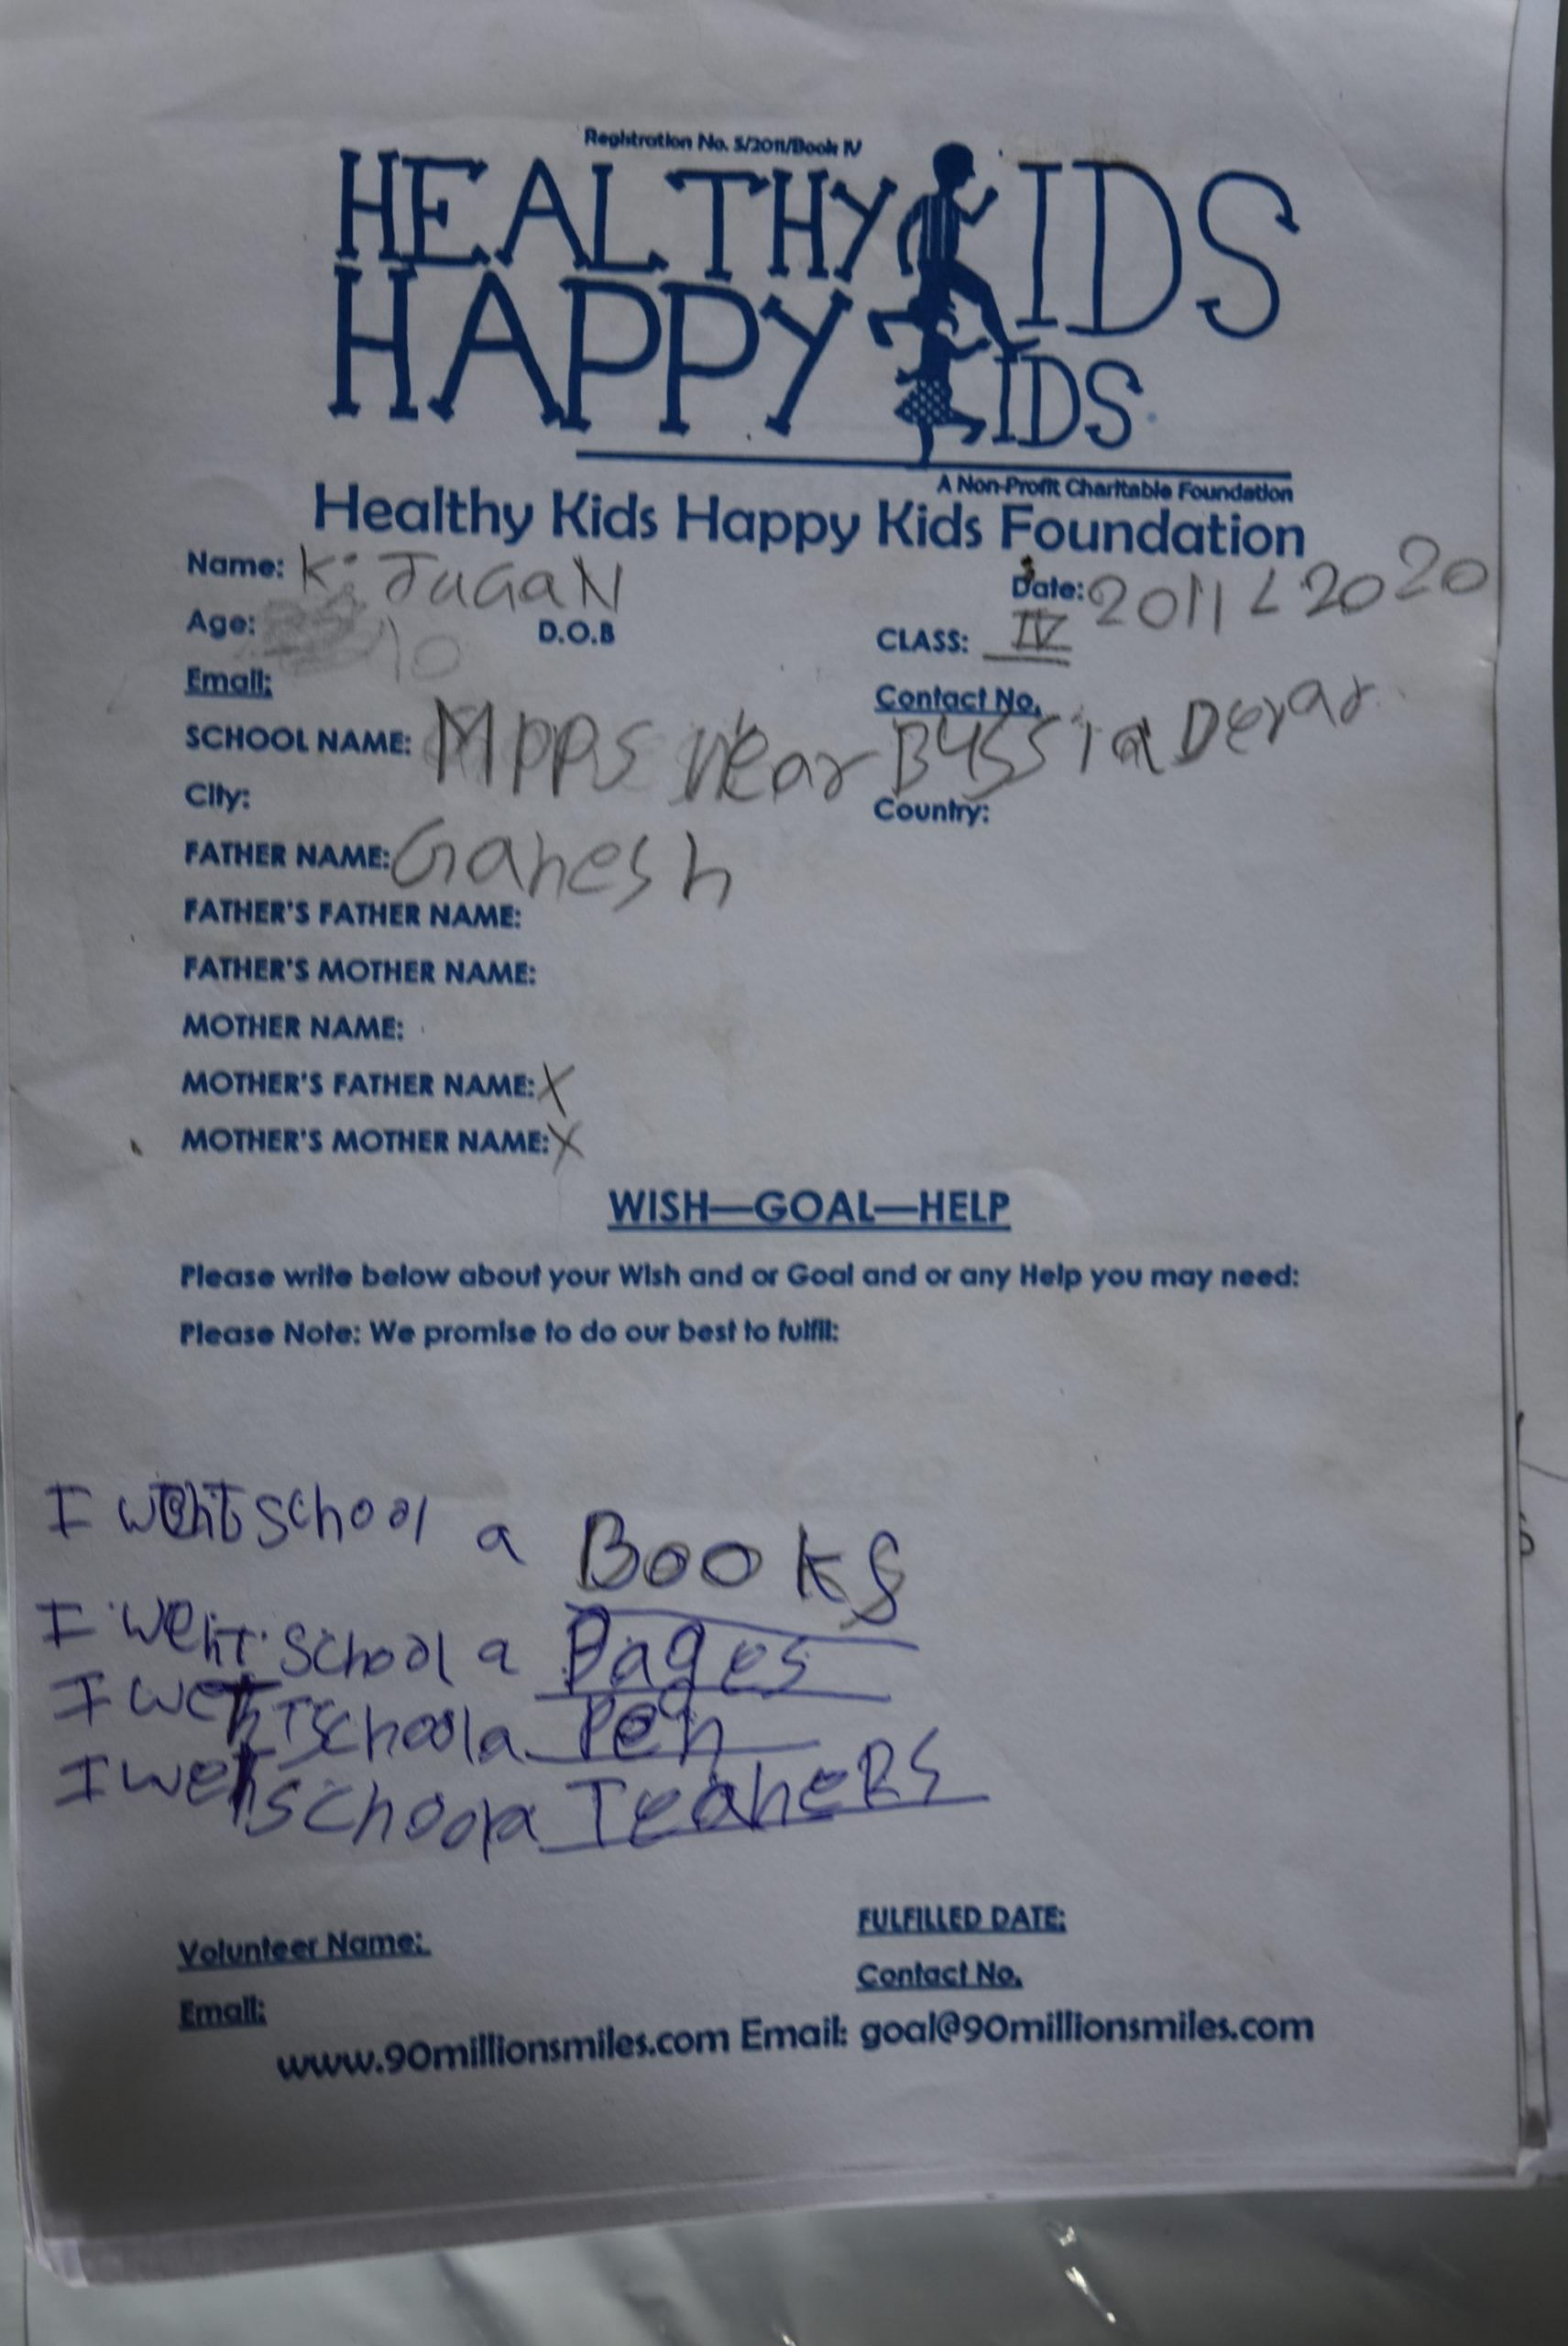 Registration No. 5/2011/Book IV
HEALTHY KIDS
HAPPY KIDS
A Non-Profit Charitable Foundation
Healthy Kids Happy Kids Foundation
Name: K. JUGAN Date: 2011/2020
Age: 10 D.O.B CLASS: IV
Email: Contact No.
SCHOOL NAME: MPPS Near
City: Country:
FATHER NAME: Ganesh
FATHER'S FATHER NAME:
FATHER'S MOTHER NAME:
MOTHER NAME:
MOTHER'S FATHER NAME: X
MOTHER'S MOTHER NAME: X
WISH—GOAL—HELP
Please write below about your Wish and or Goal and or any Help you may need:
Please Note: We promise to do our best to fulfil:
I went school a BOOKS
I went school a Bages
I went school a Pen
I wen school a TeaheRS
Volunteer Name: FULFILLED DATE:
Contact No.
Email:
www.90millionsmiles.com Email: goal@90millionsmiles.com